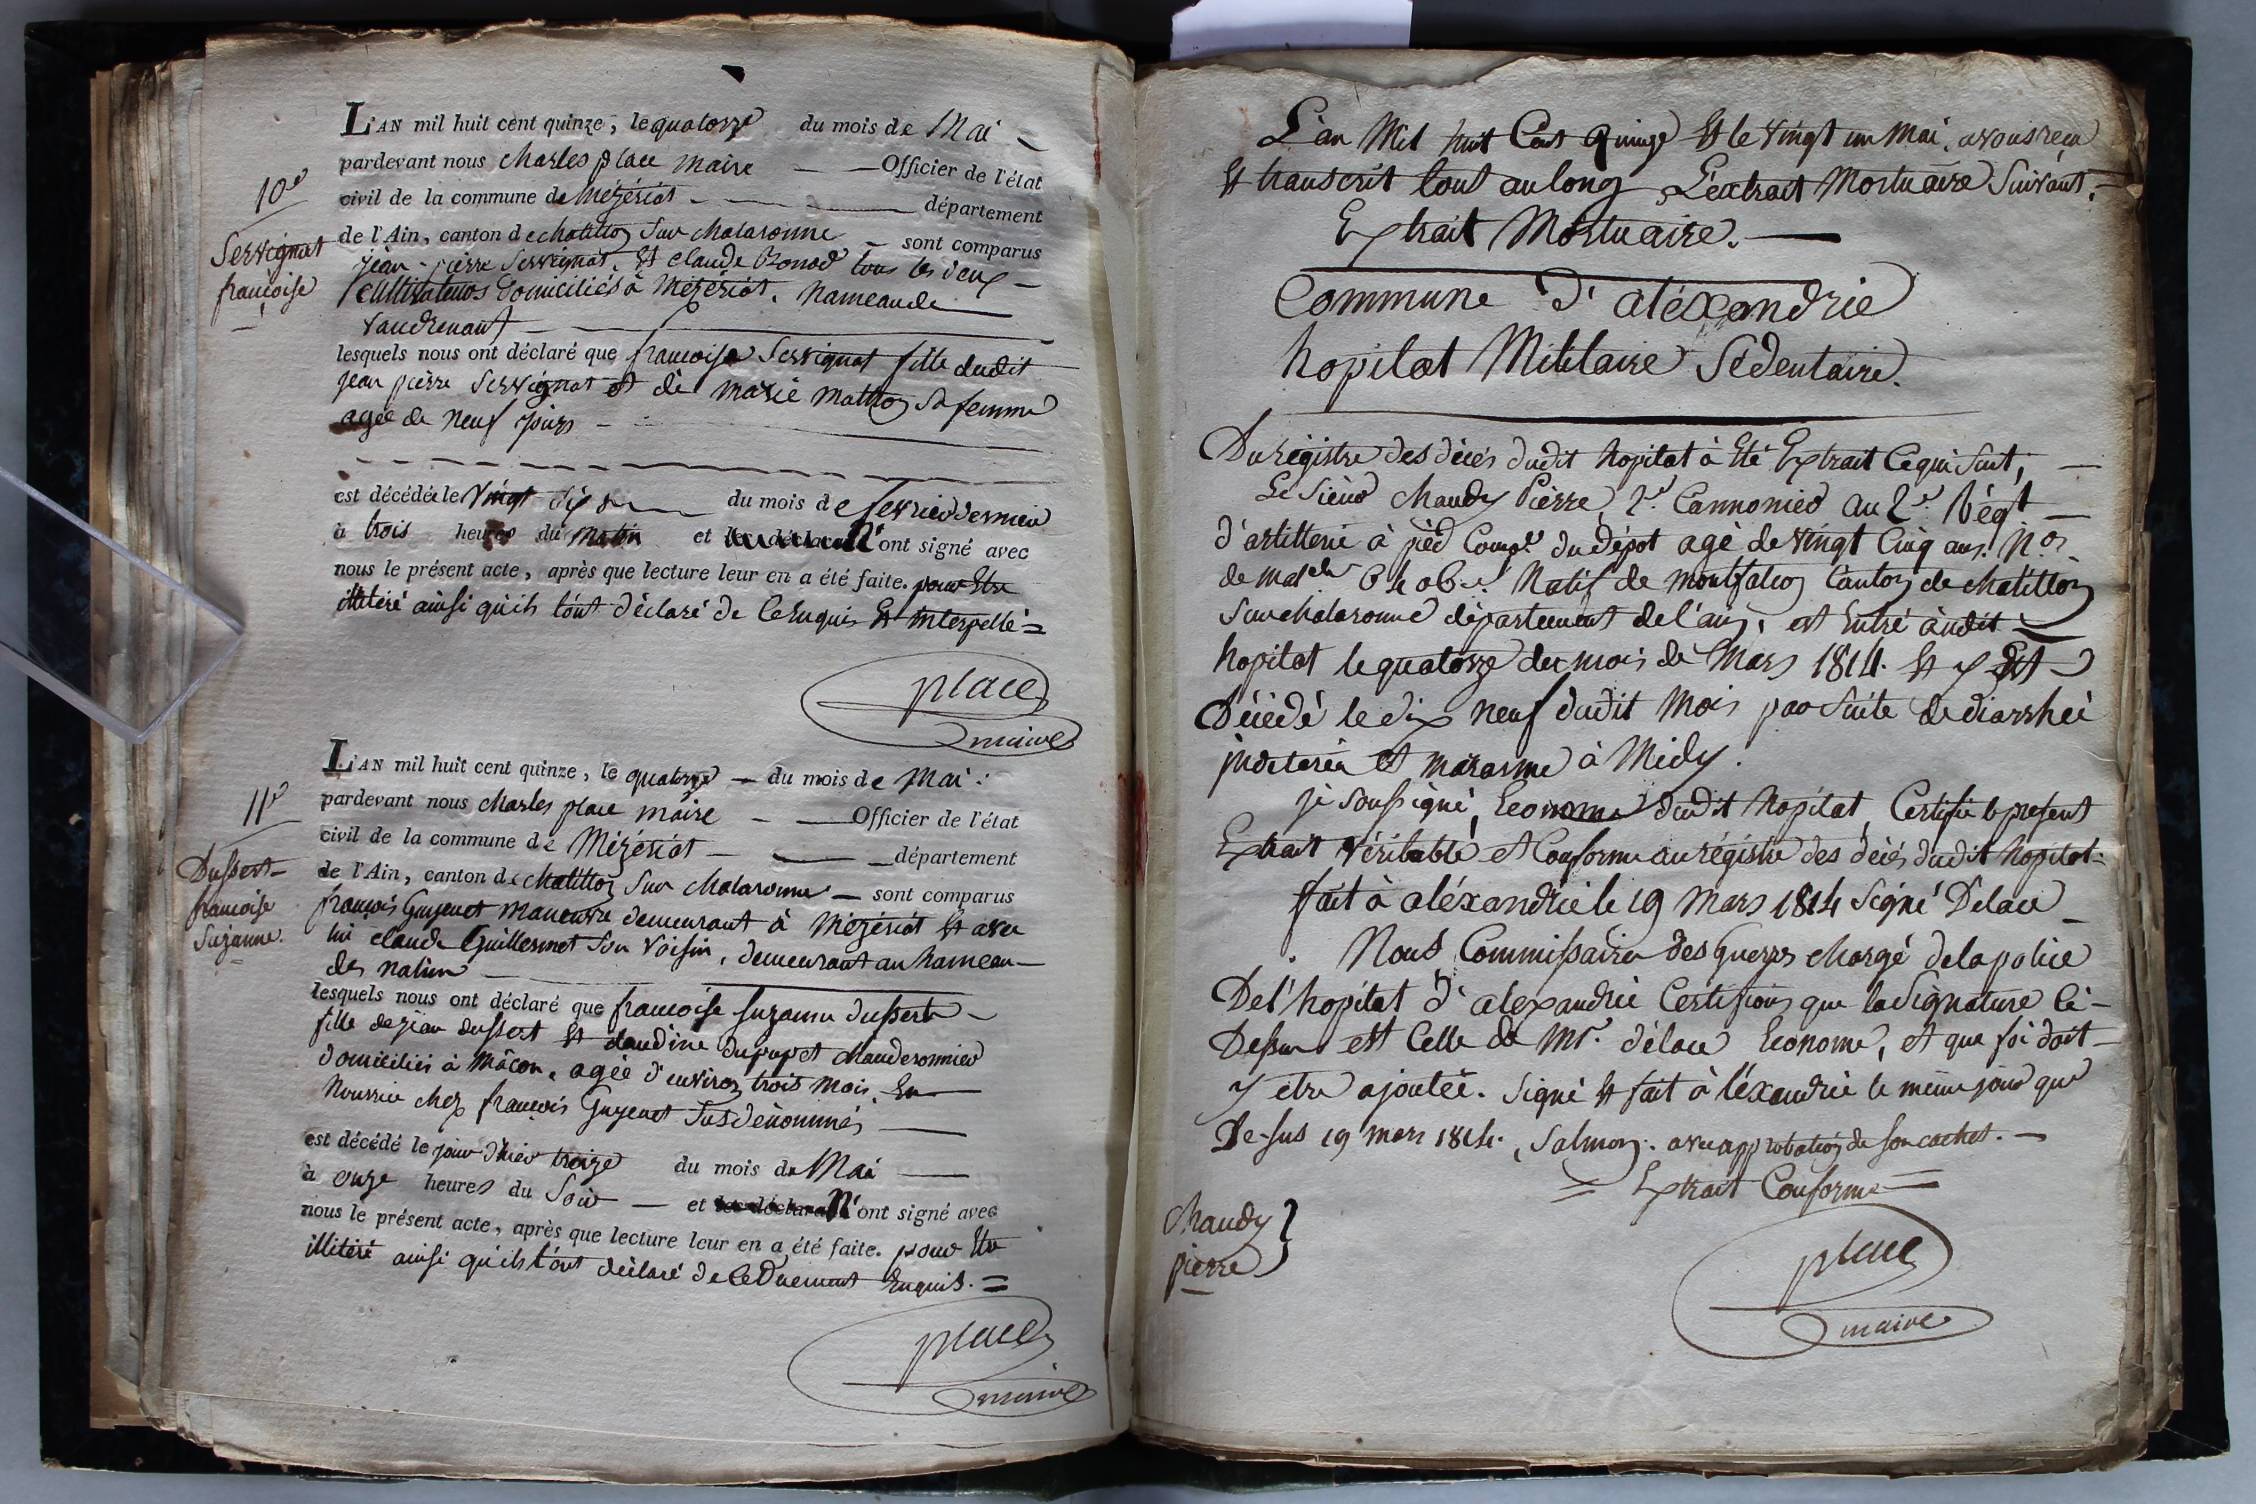 L'AN mil huit cent quinze, le quatorze du mois de Mai
pardevant nous charles place maire Officier de l'état
civil de la commune de Mézériat département
de l'Ain, canton de chatillon sur chalaronne sont comparus
10e
Servignat
françoise
jean-pierre Servignat, et claude tous les deux
cultivateurs domiciliés à Mézériat, hameau de
vaudrenant
lesquels nous ont déclaré que françoise Servignat fille dudit
jean pierre Servignat et de marie sa femme
agée de neuf jours
est décédée le vingt six du mois de fevrier dernier
à trois heures du matin et n'ont signé avec
nous le présent acte, après que lecture leur en a été faite. pour Etre
illitéré ainsi qu'ils l'ont déclaré de ce Enquis Et interpellé
place
maire
L'AN mil huit cent quinze, le quatorze du mois de Mai
pardevant nous charles place maire Officier de l'état
civil de la commune de Mézériat département
de l'Ain, canton de chatillon sur chalaronne sont comparus
11e
Dussert
françoise
Suzanne.
françois Guyenet manœuvre demeurant à Mézériat Et avec
lui claude Guillermet son voisin, demeurant au hameau
des
lesquels nous ont déclaré que françoise suzanne dussert
fille de jean dussert Et claudine dupupet chauderonnier
domiciliés à Mâcon, agée d'environ trois mois, En
Nourrice chez françois Guyenet susdénommés
est décédé le jour d'hier treize du mois de Mai
à onze heures du soir et n'ont signé avec
nous le présent acte, après que lecture leur en a été faite. pour Etre
illitéré ainsi qu'ils l'ont déclaré de ce Duement Enquis. =
place
maire
L'an Mil huit Cent Quinze Et le vingt un mai, avons recu
Et transcrit tout au long L'extrait Mortuaire Suivant.
Extrait Mortuaire.
Commune d'aléxandrie
hopital Militaire Sédentaire.
Du régistre des décés dudit hopital à Eté Extrait Cequi suit,
Le Sieur Chaudy Pierre, 2e. Cannonier au 2e. Régt
d'artillerie à pied Compe. du dépot agé de vingt Cinq ans. Nos.
de malcle Natif de montfalcon Canton de chatillon
sur chalaronne département de l'ain, est Entré audit
hopital le quatorze du mois de Mars 1814. Et y Est
Décédé le dix neuf dudit Mois par suite de diarrhéé
et marasme à Midy.
je soussigné, Econome dudit hopital, Certifie le présent
Extrait véritable et Conforme au régistre des décés dudit hopital
fait à aléxandrie le 19 Mars 1814 Signé Delace
Nous Commissaire des Guerres chargé de la police
De l'hopital d'alexandrie Certifions que la Signature Ci-
Dessus est Celle de Mr. délace Econome, et que foi doit
y etre ajoutée. Signé Et fait à léxandrie le même jour que
De-sus 19 mars 1814. Salmon. avec approbation de son cachet.
= Extrait Conforme =
Chaudy
pierre
place
maire